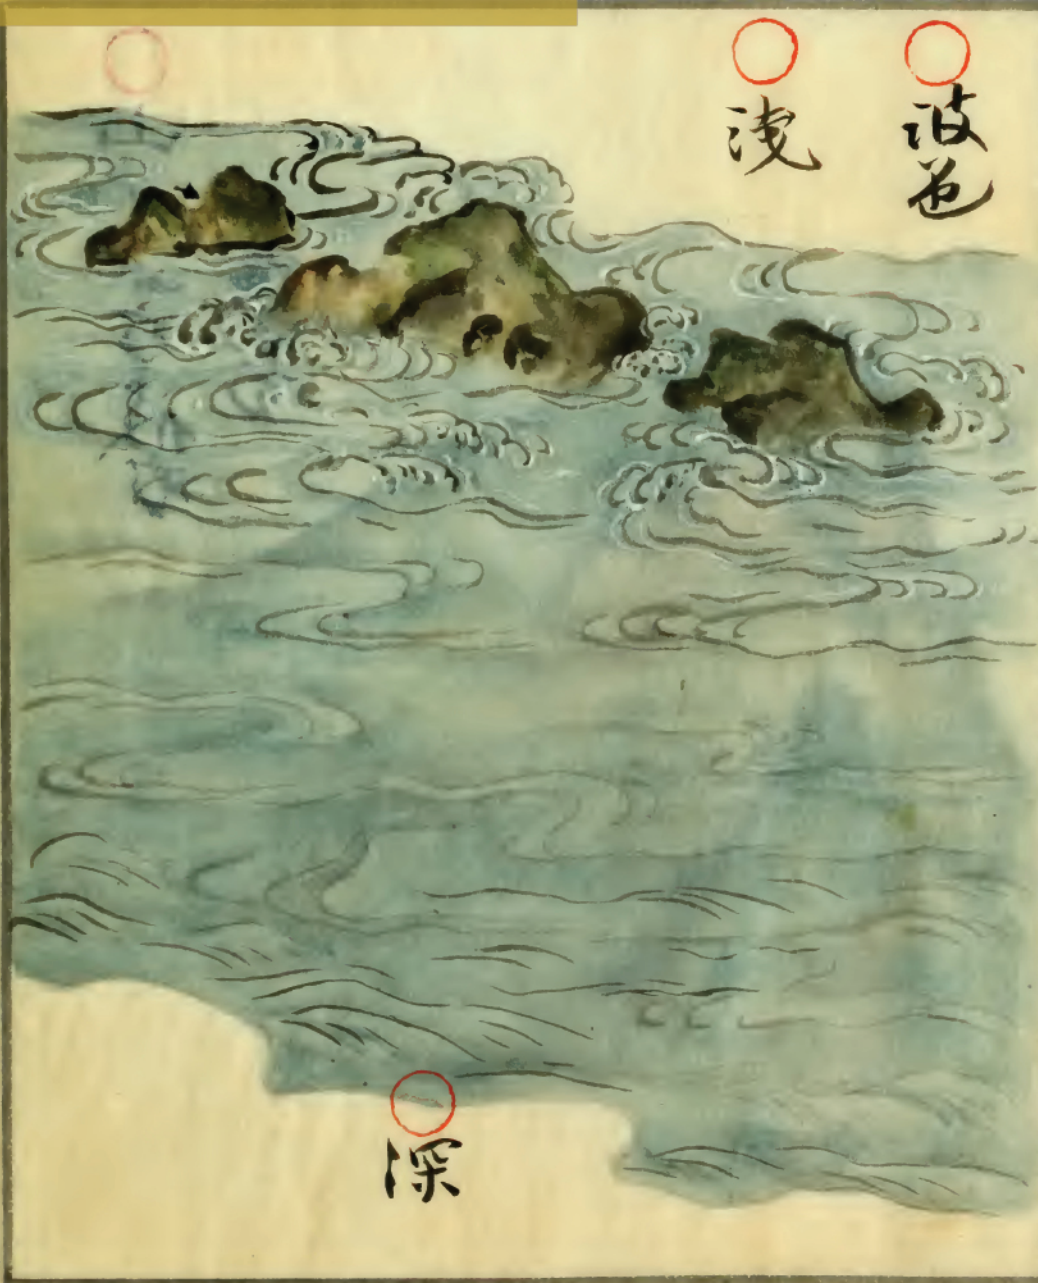 波色
浅
深